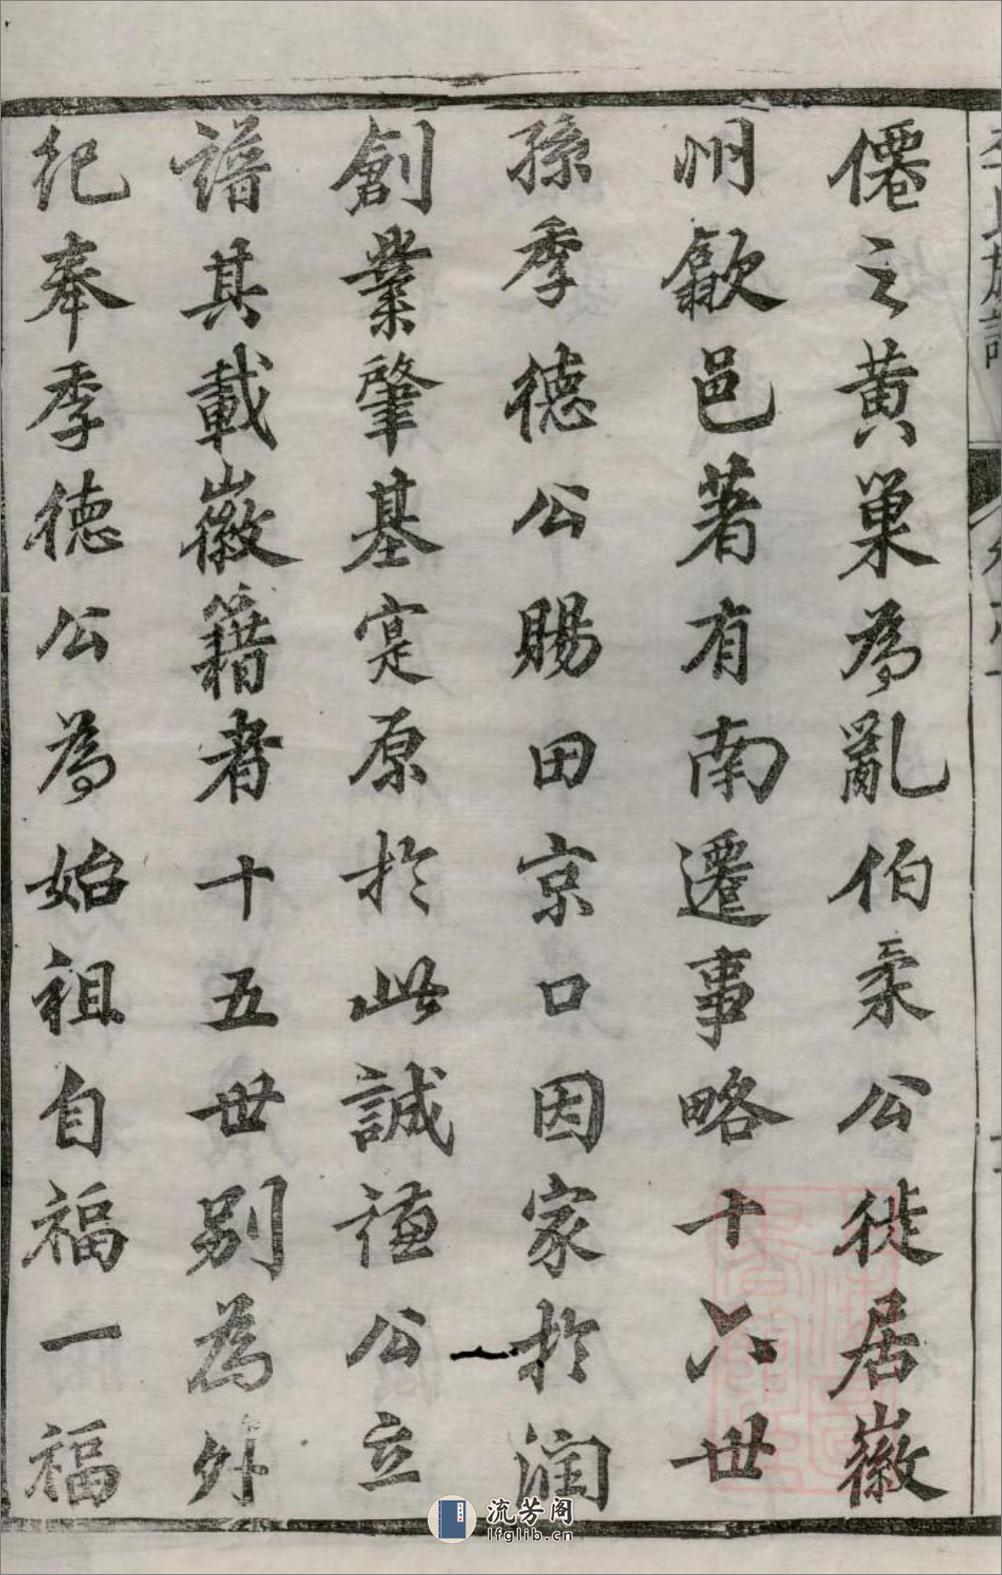 僊之黄巢為亂伯柔公徙居徽
州歙邑著有南遷事略十六世
孫季德公賜田京口因家於润
創業肇基寔原於此誠謹公立
譜其載徽籍者十五世别為外
纪奉季德公為始祖自福一福
流芳阁
lfglib.cn